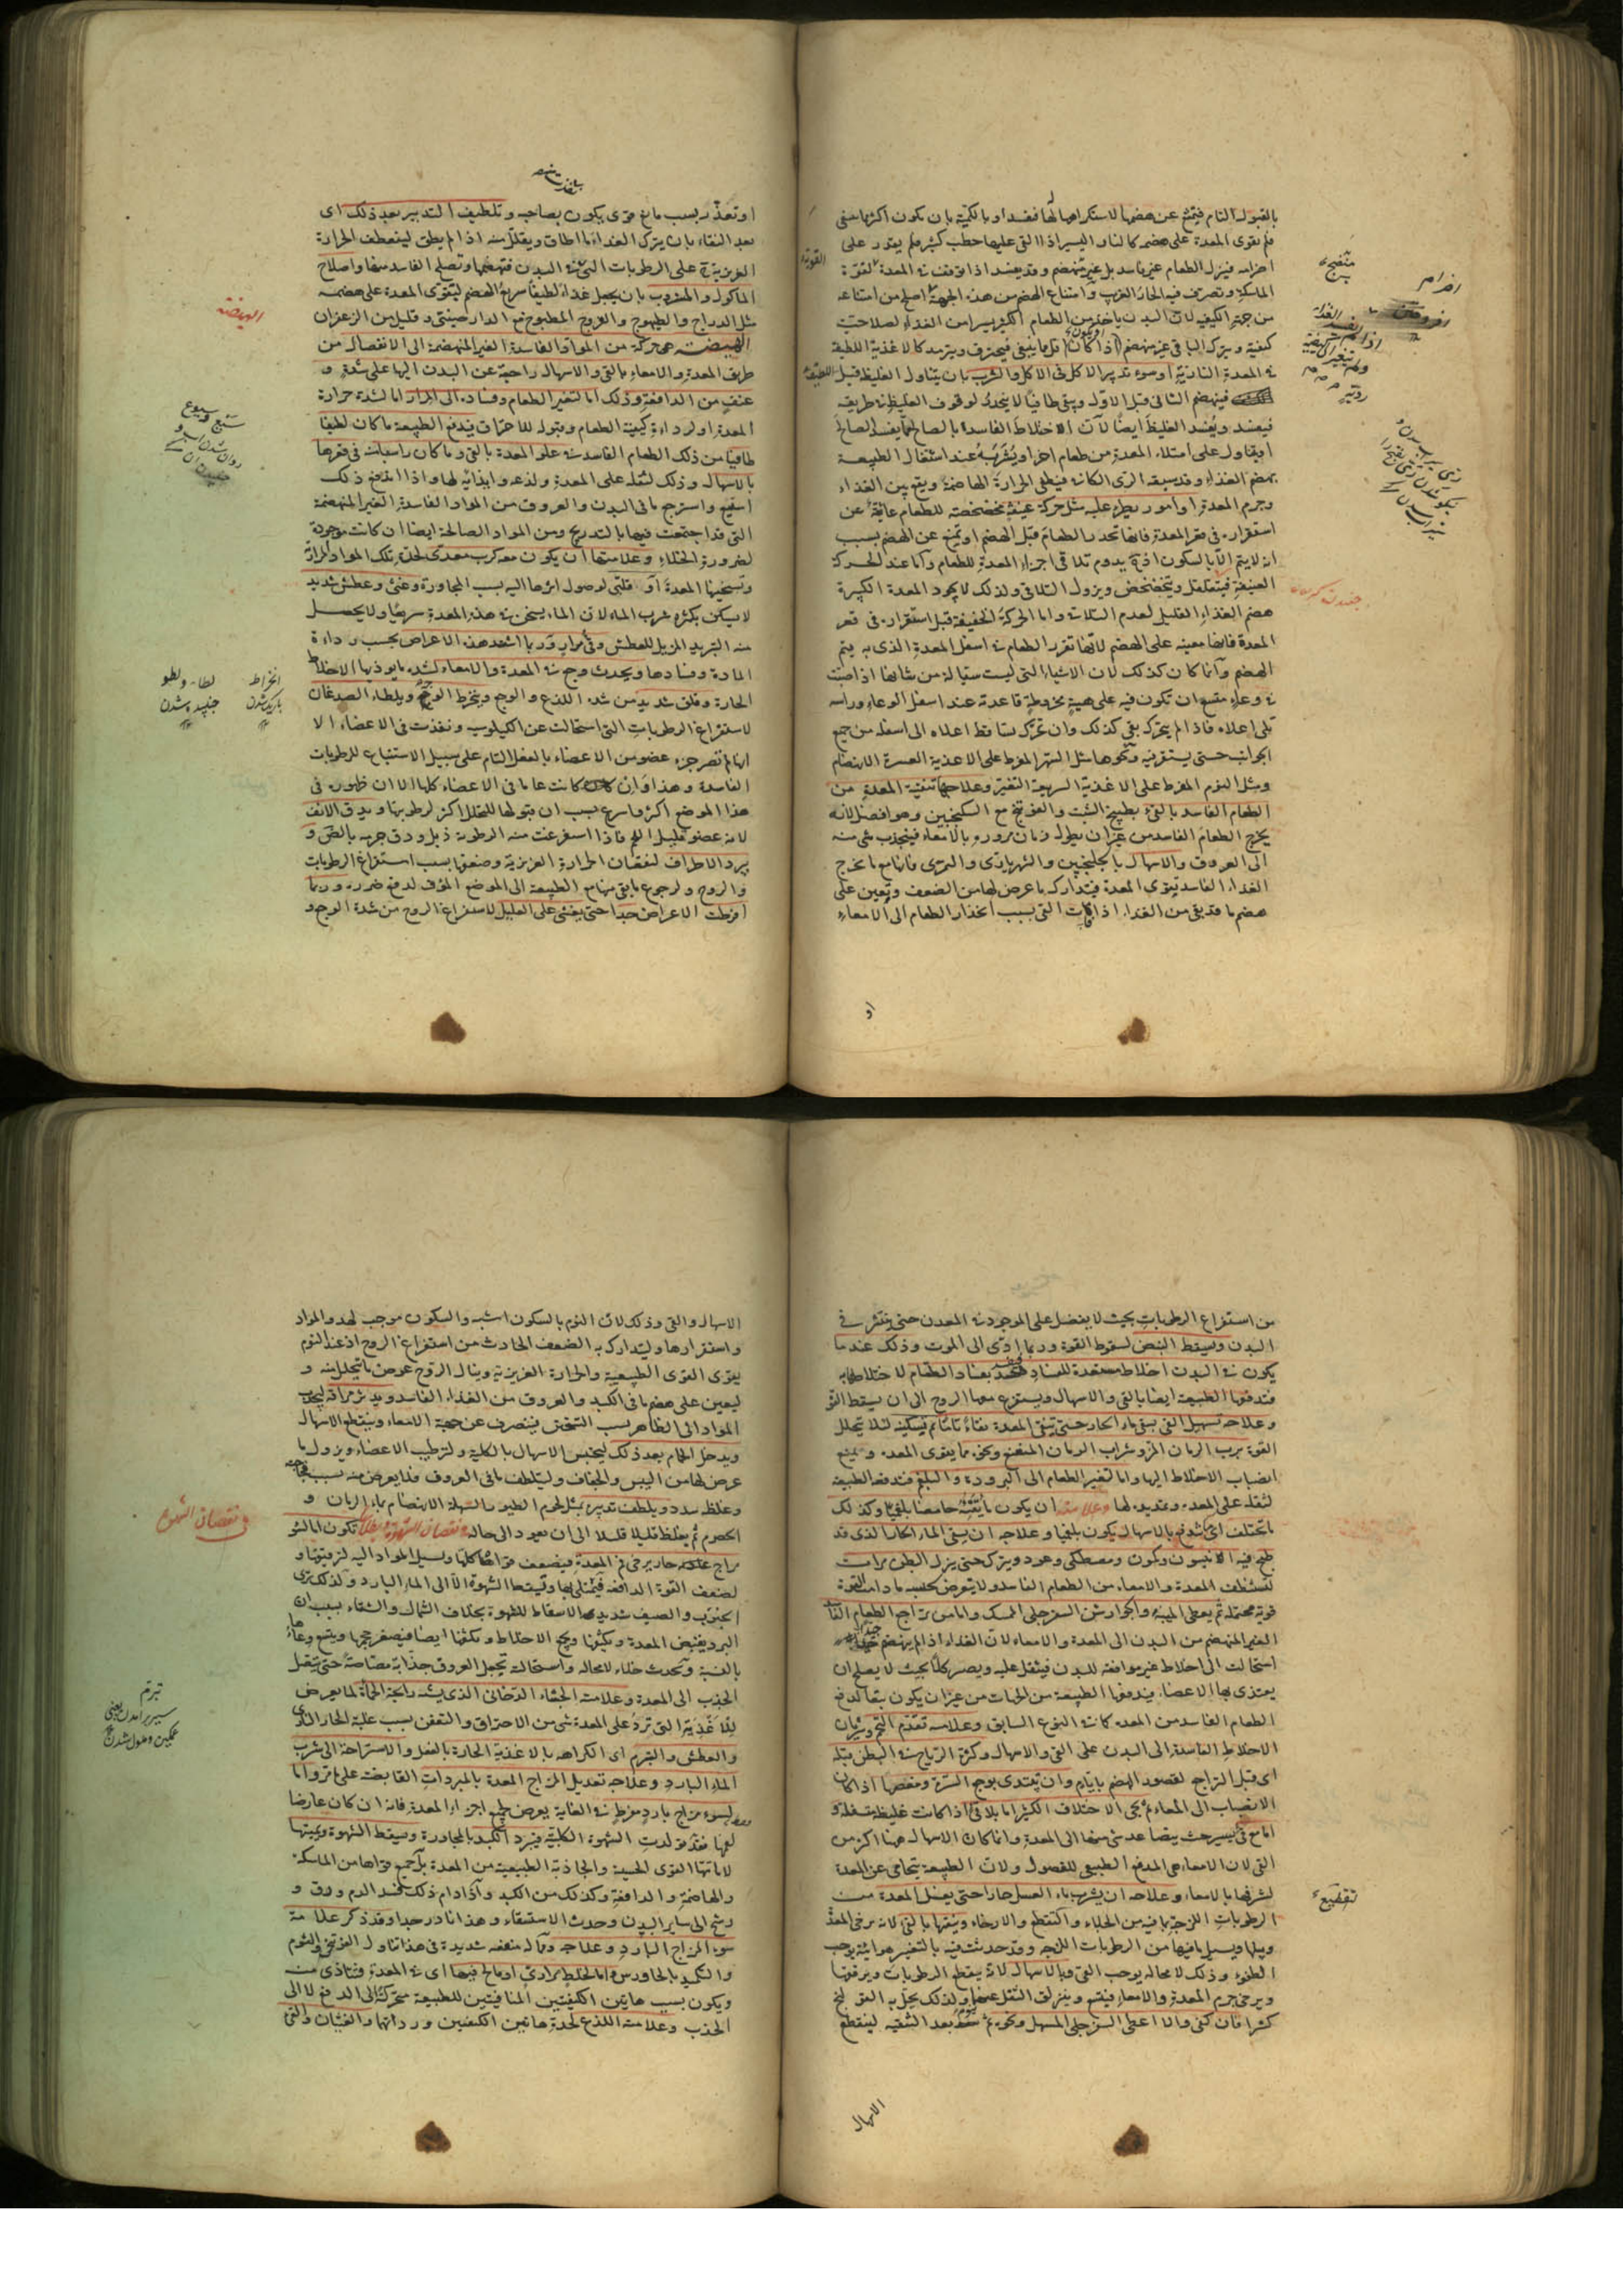 بالقبول التام فيمتنع عن هضمها لاستكراهها لها فيفسد او بالكمية بان يكون اكثر مما ينبغي
فلم تقوى المعدة على هضمه كالنار اليسير اذا القي عليها حطب كثير فلم يقدر على
احراقه فينزل الطعام غير فاسد بل غير منهضم وقد يفسد اذا توقف في المعدة لقوة
الماسكة وتصرف فيه الحار الغريب وامتناع الهضم من هذه الجهة اصلح من امتناعه
من جهة الكيفية لان البدن ياخذ من الطعام الكثير يسيرا من الغذاء لصلاحية
كيفيته ويترك الباقي غير منهضم او يكون اذا كان اقل مما ينبغي فيحترق ويترمد كالاغذية اللطيفة
في المعدة النارية او سوء تدبير الاكل في الاكل والشرب بان يتناول الغليظ قبل اللطيف
فينهضم الثاني قبل الاول ويبقى طافيا لا ينحدر لوقوف الغليظ في طريقه
فيفسد ويفسد الغليظ ايضا لان الاخلاط الفاسدة بالصالح مما يفسد الصالح
او يتناول على امتلاء المعدة من طعام اخر او يشربه عند اشتغال الطبيعة
بهضم الغذاء وقد سبقه الري الكافي فيطفي الحرارة الهاضمة ويقع بين الغذاء
وجرم المعدة او امور يطرء عليه مثل حركة عنيفة مخضخضة للطعام عائقة عن
استقراره في قعر المعدة فانها تحدر الطعام قبل الهضم او تمنع عن الهضم بسبب
انه لا يتم الا بالسكون اذ به يدوم تلاقي اجزاء المعدة للطعام واما عند الحركة
العنيفة فيتقلقل ويتخضخض ويزول التلاقي ولذلك لا يجود المعدة الكبيرة
هضم الغذاء القليل لعدم التلاقي واما الحركة الخفيفة قبل استقراره في قعر
المعدة فانها معينة على الهضم لانها تقرر الطعام في اسفل المعدة الذي به يتم
الهضم وانما كان كذلك لان الاشياء التي ليست سيالة من شانها اذا صبت
في وعاء متسع ان تكون فيه على هيئة مخروطة قاعدته عند اسفل الوعاء وراسه
تلي اعلاه فاذا لم يحرك بقي كذلك وان تحرك تساقط اعلاه الى اسفله من جميع
الجوانب حتى يستقر فيه ونحوها مثل السهر المفرط على الاغذية العسرة الانهضام
ومثل النوم المفرط على الاغذية السريعة التغير وعلاجها تنقية المعدة من
الطعام الفاسد بالقيء بطبيخ الشبت والفوتنج مع السكنجبين وهو افضل لانه
يخرج الطعام الفاسد من غير ان يطول زمان مروره بالامعاء فينجذب شيء منه
الى العروق والاسهال بالجلنجبين والشهرياري والتمري فانها مع ما تخرج
الغذاء الفاسد تقوي المعدة فيتدارك ما عرض لها من الضعف وتعين على
هضم ما قد بقي من الغذاء اذا فات القيء بسبب انحدار الطعام الى الامعاء
او
القوة
اللطيف
احزام
او تعذر بسبب مانع قوي يكون بصاحبه وتلطيف التدبير بعد ذلك اي
بعد النقاء بان يترك الغذاء ما اطاق ويقلل منه اذا لم يطق لينعطف الحرارة
الغريزية على الرطوبات التي في البدن فتهضمها وتصلح الفاسد منها واصلاح
الماكول والمشروب بان يجعل غذاء لطيفا سريع الهضم ليقوى المعدة على هضمه
مثل الدراج والطيهوج والفروج المطبوخ مع الدارصيني وقليل من الزعفران
الهيضة هي حركة من المواد الفاسدة الغير المنهضمة الى الانفصال من
طريق المعدة والامعاء بالقيء والاسهال راجعة عن البدن اليها على شدة و
عنف من الدافعة وذلك اما لتغير الطعام وفساده الى المرار اما لشدة حرارة
المعدة او لرداءة كيفية الطعام وقبوله للاحتراق فتدفع الطبيعة ما كان لطيفا
طافيا من ذلك الطعام الفاسد في علو المعدة بالقيء وما كان راسبا في قعرها
بالاسهال وذلك لثقله على المعدة ولذعه وايذائه لها واذا اندفع ذلك
استتبع واستخرج ما في البدن والعروق من المواد الفاسدة الغير المنهضمة
التي قد اجتمعت فيها بالتدريج ومن المواد الصالحة ايضا ان كانت موجودة
لضرورة الخلاء وعلامتها ان يكون معه كرب معدي لحدة تلك المواد المرارية
وتسخينها المعدة او قلبي لوصول اثرها اليه بسبب المجاورة وغثي وعطش شديد
لا يسكن بكثرة شرب الماء لان الماء يسخن في هذه المعدة سريعا ولا يحصل
منه التبريد المزيل للعطش وقيء مرار وربما اشتد هذه الاعراض بحسب رداءة
المادة وفسادها ويحدث وجع في المعدة والامعاء لشدة ما يوذيها الاخلاط
الحارة وقلق شديد من شدة اللذع والوجع وينخرط الوجه ويلطاء الصدغان
لاستفراغ الرطوبات التي استحالت عن الكيلوس ونفذت في الاعضاء الا
انها لم تصر جزء عضو من الاعضاء بالفعل التام على سبيل الاستتباع للرطوبات
الفاسدة وهذا وان كانت عاما في الاعضاء كلها الا ان ظهوره في
هذا الموضع اكثر واسرع بسبب ان قبولها للتحلل اكثر لرطوبتها ويدق الانف
لانه عضو قليل اللحم فاذا استفرغت منه الرطوبة ذبل ودق جرمه بالضمور و
يبرد الاطراف لنقصان الحرارة الغريزية وضعفها بسبب استفراغ الرطوبات
والروح ولرجوع ما بقي منها مع الطبيعة الى الموضع المؤف لدفع ضرره وربما
افرطت الاعراض جدا حتى يغشى على العليل لاستفراغ الروح من شدة الوجع و
الهيضة
انخراط
باريك شدن
من استفراغ الرطوبات بحيث لا يفضل على الموجود في المعدة حتى ينتشر في
البدن ويسقط النبض لسقوط القوة وربما ادى الى الموت وذلك عندما
يكون في البدن اخلاط مستعدة للفساد فتفسد بفساد الطعام لاختلاطها به
فتدفعها الطبيعة ايضا بالقيء والاسهال ويستفرغ معها الروح الى ان يسقط القوة
وعلاجه تسهيل القيء بسقي ماء الحار حتى تنقى المعدة نقاء تاما ثم تسكينه لئلا يتحلل
القوة برب الرمان المز وشراب الرمان المنعنع ونحوه مما يقوي المعدة ويمنع
انصباب الاخلاط اليها واما لتغير الطعام الى البرودة والبلغم فتدفعه الطبيعة
لثقله على المعدة وتمديده لها وعلامته ان يكون ما يتقيئه حامضا بلغميا وكذلك
ما يختلف اي يندفع بالاسهال يكون بلغميا وعلاجه ان يسقى الماء الحار الذي قد
طبخ فيه الانيسون وكمون ومصطكي وعود ويترك حتى ينزل البطن مرات
لتنظف المعدة والامعاء من الطعام الفاسد ولا يتعرض لحبسه ما دامت القوة
قوية محتملة ثم يعطى الميبة وجوارش السفرجلي الممسك واما من تراجع الطعام الفاسد
الغير المنهضم من البدن الى المعدة والامعاء لان الغذاء اذا لم ينهضم جيدا
استحالت الى اخلاط غير موافقة للبدن فيثقل عليه ويصير كلا بحيث لا يصلح ان
يغتذي بها الاعضاء فيدفعها الطبيعة من الجهات من غير ان يكون تبعا لدفع
الطعام الفاسد من المعدة كما في النوع السابق وعلامته تقدم التخم وثوران
الاخلاط الفاسدة الى البدن على القيء والاسهال وكثرة الرياح في البطن قبله
اي قبل التراجع لقصور الهضم بايام وان يبتدى بوجع السرة ومغصها اذا كان
الانصباب الى المعاء ثم يجيء الاختلاف الكثير اما بلا قيء اذا كانت غليظة متسفلة و
اما مع قيء يسير حيث يتصاعد شيء منها الى المعدة وانما كان الاسهال هيهنا اكثر من
القيء لان الامعاء هي المدفع الطبيعي للفضول ولان الطبيعة يتحامى عن المعدة
لشرفها بالامعاء وعلاجه ان يشرب ماء العسل حارا حتى يغسل المعدة من
الرطوبات اللزجة بما فيه من الجلاء والتقطيع والارخاء وينقيها بالقيء لانه يرخي المعدة
ويبلها ويسيل ما فيها من الرطوبات اللزجة وقد حدثت فيه بالتغير هوائية يوجب
الطفو وذلك لا محالة يوجب القيء وبالاسهال لانه يقطع الرطوبات ويرققها
ويرخي جرم المعدة والامعاء فيتسع وينزلق الثفل عنها ولذلك يحل به القولنج
كثيرا فان كفى والا اعطي السفرجلي المسهل ونحوه ثم ينوم بعد التنقية لينقطع
الاسهال
تقطيع
الاسهال والقيء وذلك لان النوم بالسكون اشبه والسكون موجب لهدو المواد
واستقرارها وليتدارك به الضعف الحادث من استفراغ الروح اذ عند النوم
يقوى القوى الطبيعية والحرارة الغريزية وينال الروح عوض ما يتحلل منه و
ليعين على هضم ما في الكبد والعروق من الغذاء الفاسد ويدثر مراقه ليجذب
المواد الى الظاهر بسبب التسخين ينصرف عن جهة الامعاء وينقطع الاسهال
ويدخل الحمام بعد ذلك ليحتبس الاسهال بالكلية ولترطيب الاعضاء ويزول ما
عرض لها من اليبس والجفاف وليتلطف ما في العروق فلا يعرض منه بسبب فجاجته
وغلظه سدد ويلطف تدبيره بمثل لحوم الطيور السهلة الانهضام بماء الرمان و
الحصرم ثم يغلظ قليلا قليلا الى ان يعود الى حاله نقصان الشهوة وبطلانها تكون اما لسوء
مزاج حار يرخي فم المعدة فيضعف قواها كلها ويسيل المواد اليه لترقيقها و
لضعف القوة الدافعة فيمتلي بها وتسقط الشهوة الا الى الماء البارد ولذلك ترى
الجنوب والصيف شديدي الاسقاط للشهوة بخلاف الشمال والشتاء بسبب ان
البرد يقبض المعدة ويكثفها ويجمع الاخلاط ويكثفها ايضا فيصغر حجمها ويتسع وعاءها
بالنسبة ويحدث خلاء لا محالة واستحالته تجعل العروق جذابة مصاصة حتى يتصل
الجذب الى المعدة وعلامته الجشاء الدخاني الذي يشبه رايحة الحمأة لما يعرض
للاغذية التي ترد على المعدة شيء من الاحتراق والتعفن بسبب غلبة الحار الناري
والعطش والتبرم اي الكراهة بالاغذية الحارة بالفعل والاستراحة الى شرب
الماء البارد وعلاجه تعديل المزاج المعدة بالمبردات القابضة على ما مر واما
لسوء مزاج بارد مفرط في الغاية يعرض لجميع اجزاء المعدة فانه ان كان عارضا
لفمها فقط ولدت الشهوة الكلبية فيبرد الكبد بالمجاورة ويسقط الشهوة ويميتها
لاماتتها القوى الحسية والجاذبة الطبيعية من المعدة بل جميع قواها من الماسكة
والهاضمة والدافعة وكذلك من الكبد واذا دام ذلك فسد الدم ورق و
رشح الى ساير البدن وحدث الاستسقاء وهذا نادر جدا وقد ذكر علامة
سوء المزاج البارد وعلاجه ومما له منفعة شديدة في هذا تناول الفوتنجي والثوم
والتكميد بالجاورس واما لخلط مراري او مالح فيها اي في المعدة فتتاذى منه
ويكون بسبب هاتين الكيفيتين المنافيتين للطبيعة متحركة الى الدفع لا الى
الجذب وعلامته اللذع لحدة هاتين الكيفيتين ورداءتها والغثيان والقيء
في نقصان الشهوة
تبرم
سير برامدن يعني
غمكين وملول شدن